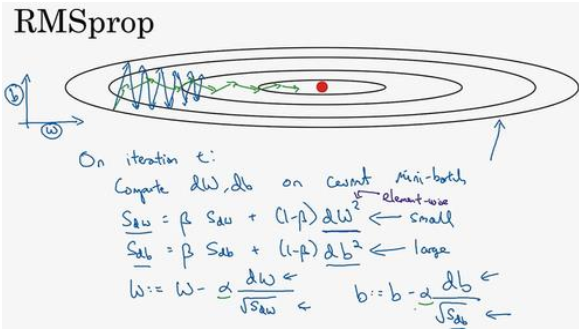 RMSprop
b
w
On iteration t:
Compute dW, db on current mini-batch
element-wise
S_dw = β S_dw + (1-β) dW² ← small
S_db = β S_db + (1-β) db² ← large
W := W - α dW/√S_dw ← b := b - α db/√S_db ←